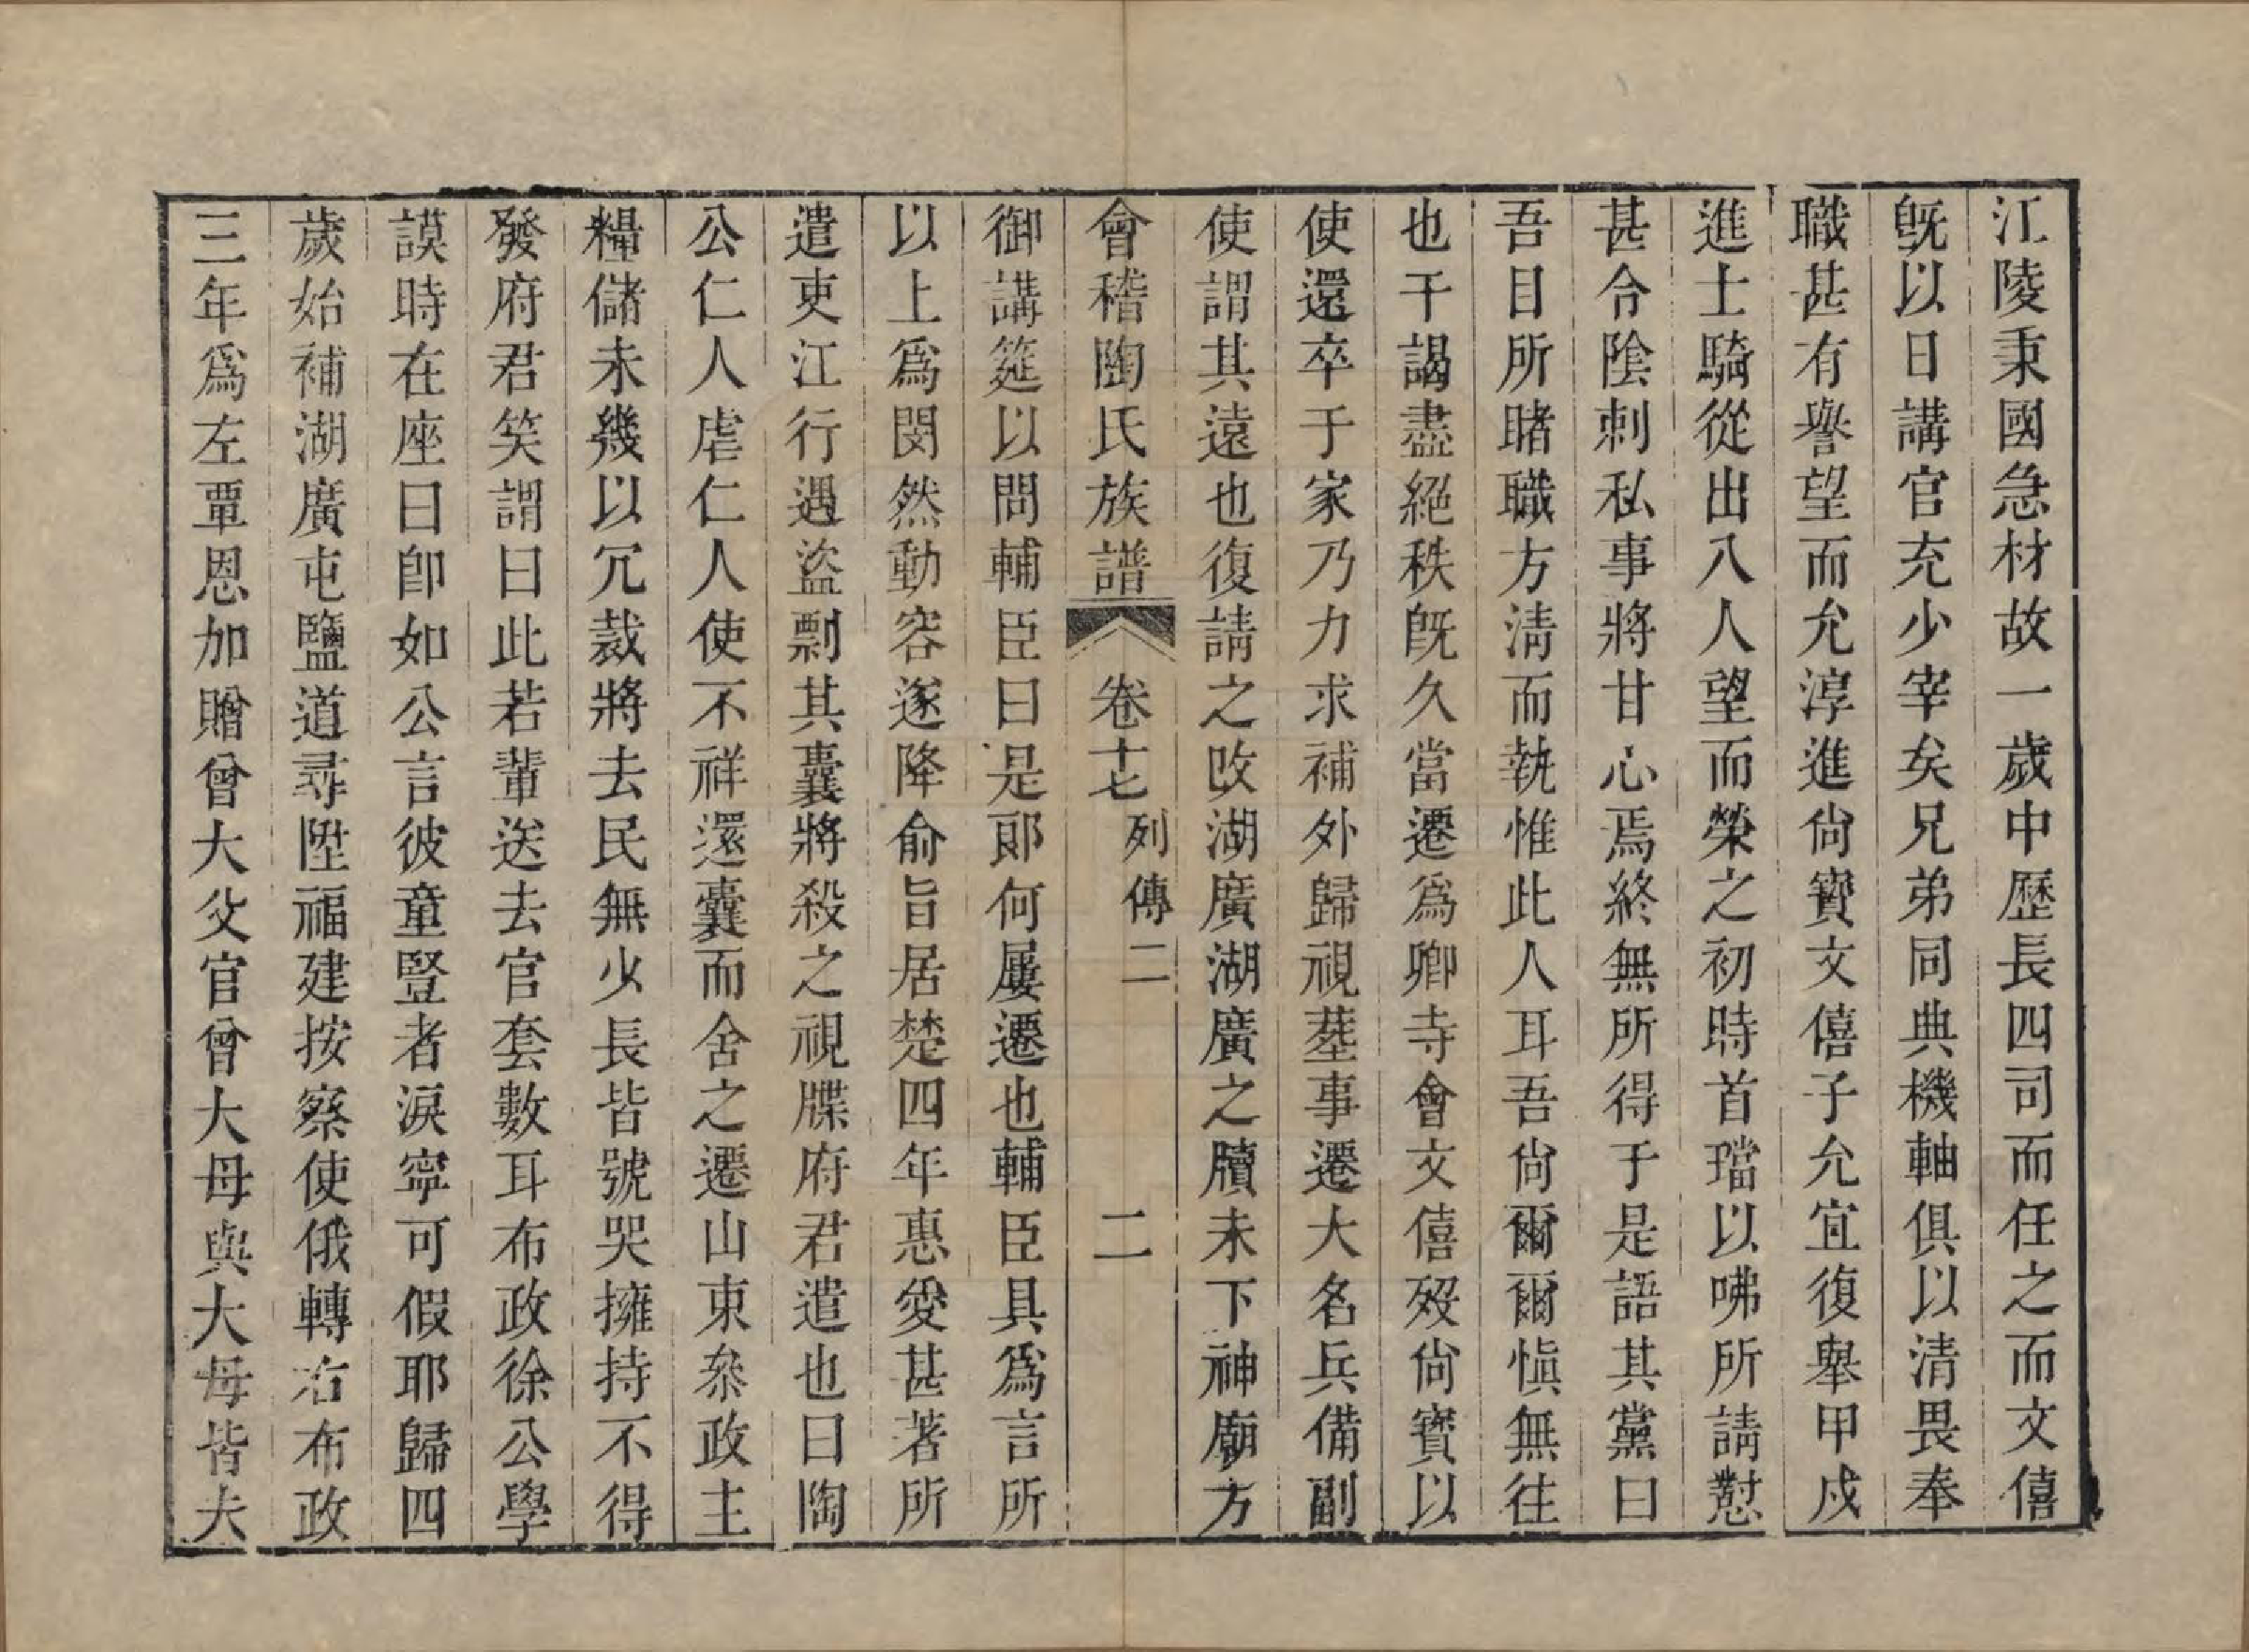 江陵秉國急材故一歲中歷長四司而任之而文僖
既以日講官充少宰矣兄弟同典機軸俱以清畏奉
職甚有譽望而允淳進尙寶文僖子允宜復舉甲戍
進士騎從出入人望而榮之初時首璫以咈所請懟
甚令陰刺私事將甘心焉終無所得于是語其黨曰
吾目所睹職方淸而執惟此人耳吾尙爾爾愼無往
也干謁盡絕秩旣久當遷爲卿寺會文僖歿尙寶以
使還卒于家乃力求補外歸視塟事遷大名兵備副
使謂其遠也復請之改湖廣湖廣之牘未下神廟方
會稽陶氏族譜 卷十七 列傳二 二
御講筵以問輔臣曰是郎何屢遷也輔臣具爲言所
以上爲閔然動容遂降俞旨居楚四年惠愛甚著所
遣吏江行遇盜剽其囊將殺之視牒府君遣也曰陶
公仁人虐仁人使不祥還囊而舍之遷山東叅政主
糧儲未幾以冗裁將去民無少長皆號哭擁持不得
發府君笑謂曰此若輩送去官套數耳布政徐公學
謨時在座曰卽如公言彼童豎者淚寧可假耶歸四
歲始補湖廣屯鹽道尋陞福建按察使俄轉右布政
三年爲左覃恩加贈曾大父官曾大母與大母皆夫